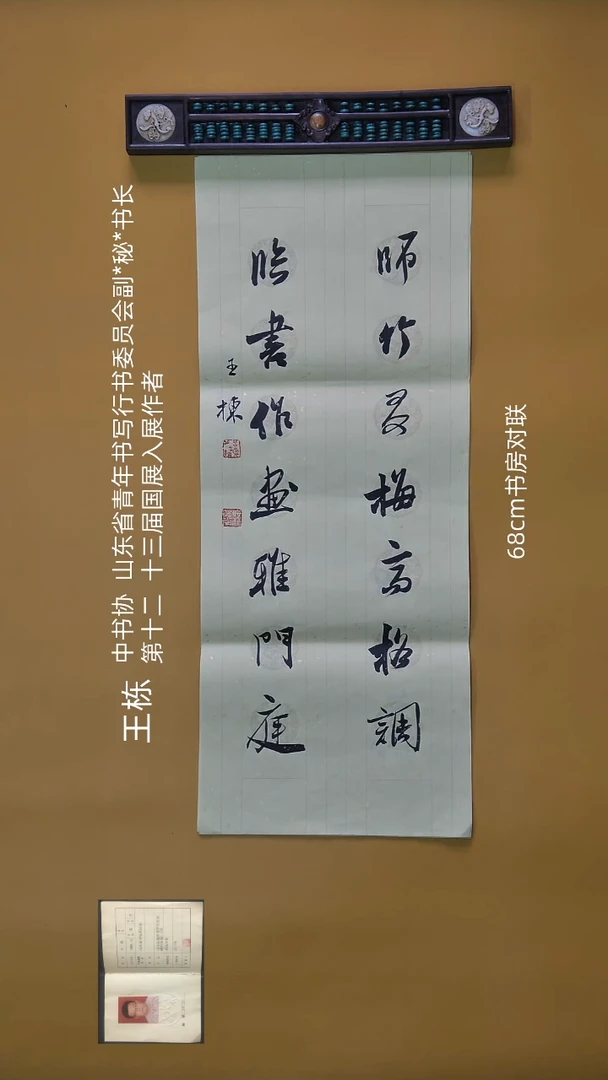 师竹友梅高格調
临書作画雅門庭
王棟
68cm书房对联
王栋 中书协 山东省青年书写行书委员会副*秘*书长
第十二 十三届国展入展作者